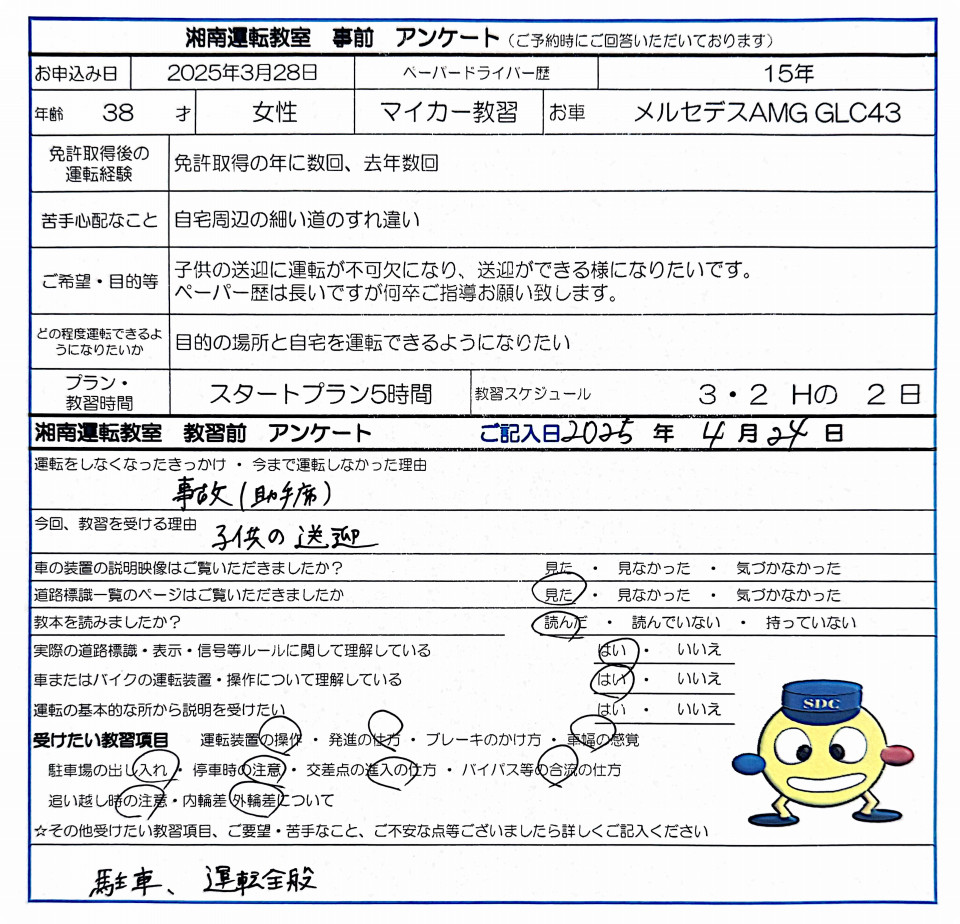 湘南運転教室　事前　アンケート（ご予約時にご回答いただいております）
お申込み日　2025年3月28日　ペーパードライバー歴　15年
年齢　38　才　女性　マイカー教習　お車　メルセデスAMG GLC43
免許取得後の
運転経験　免許取得の年に数回、去年数回
苦手心配なこと　自宅周辺の細い道のすれ違い
ご希望・目的等　子供の送迎に運転が不可欠になり、送迎ができる様になりたいです。
ペーパー歴は長いですが何卒ご指導お願い致します。
どの程度運転できるよ
うになりたいか　目的の場所と自宅を運転できるようになりたい
プラン・
教習時間　スタートプラン5時間　教習スケジュール　3・2　Hの　2日
湘南運転教室　教習前　アンケート　ご記入日2025 年 4 月 24 日
運転をしなくなったきっかけ ・ 今まで運転しなかった理由
事故（助手席）
今回、教習を受ける理由　子供の送迎
車の装置の説明映像はご覧いただきましたか？　見た　・　見なかった　・　気づかなかった
道路標識一覧のページはご覧いただきましたか　見た　・　見なかった　・　気づかなかった
教本を読みましたか？　読んだ　・　読んでいない　・　持っていない
実際の道路標識・表示・信号等ルールに関して理解している　はい　・　いいえ
車またはバイクの運転装置・操作について理解している　はい　・　いいえ
運転の基本的な所から説明を受けたい　はい　・　いいえ
受けたい教習項目　運転装置の操作 ・ 発進の仕方 ・ ブレーキのかけ方 ・ 車幅の感覚
駐車場の出し入れ ・ 停車時の注意 ・ 交差点の進入の仕方 ・ バイパス等の合流の仕方
追い越し時の注意・内輪差 外輪差について
☆その他受けたい教習項目、ご要望・苦手なこと、ご不安な点等ございましたら詳しくご記入ください
駐車、運転全般
SDC